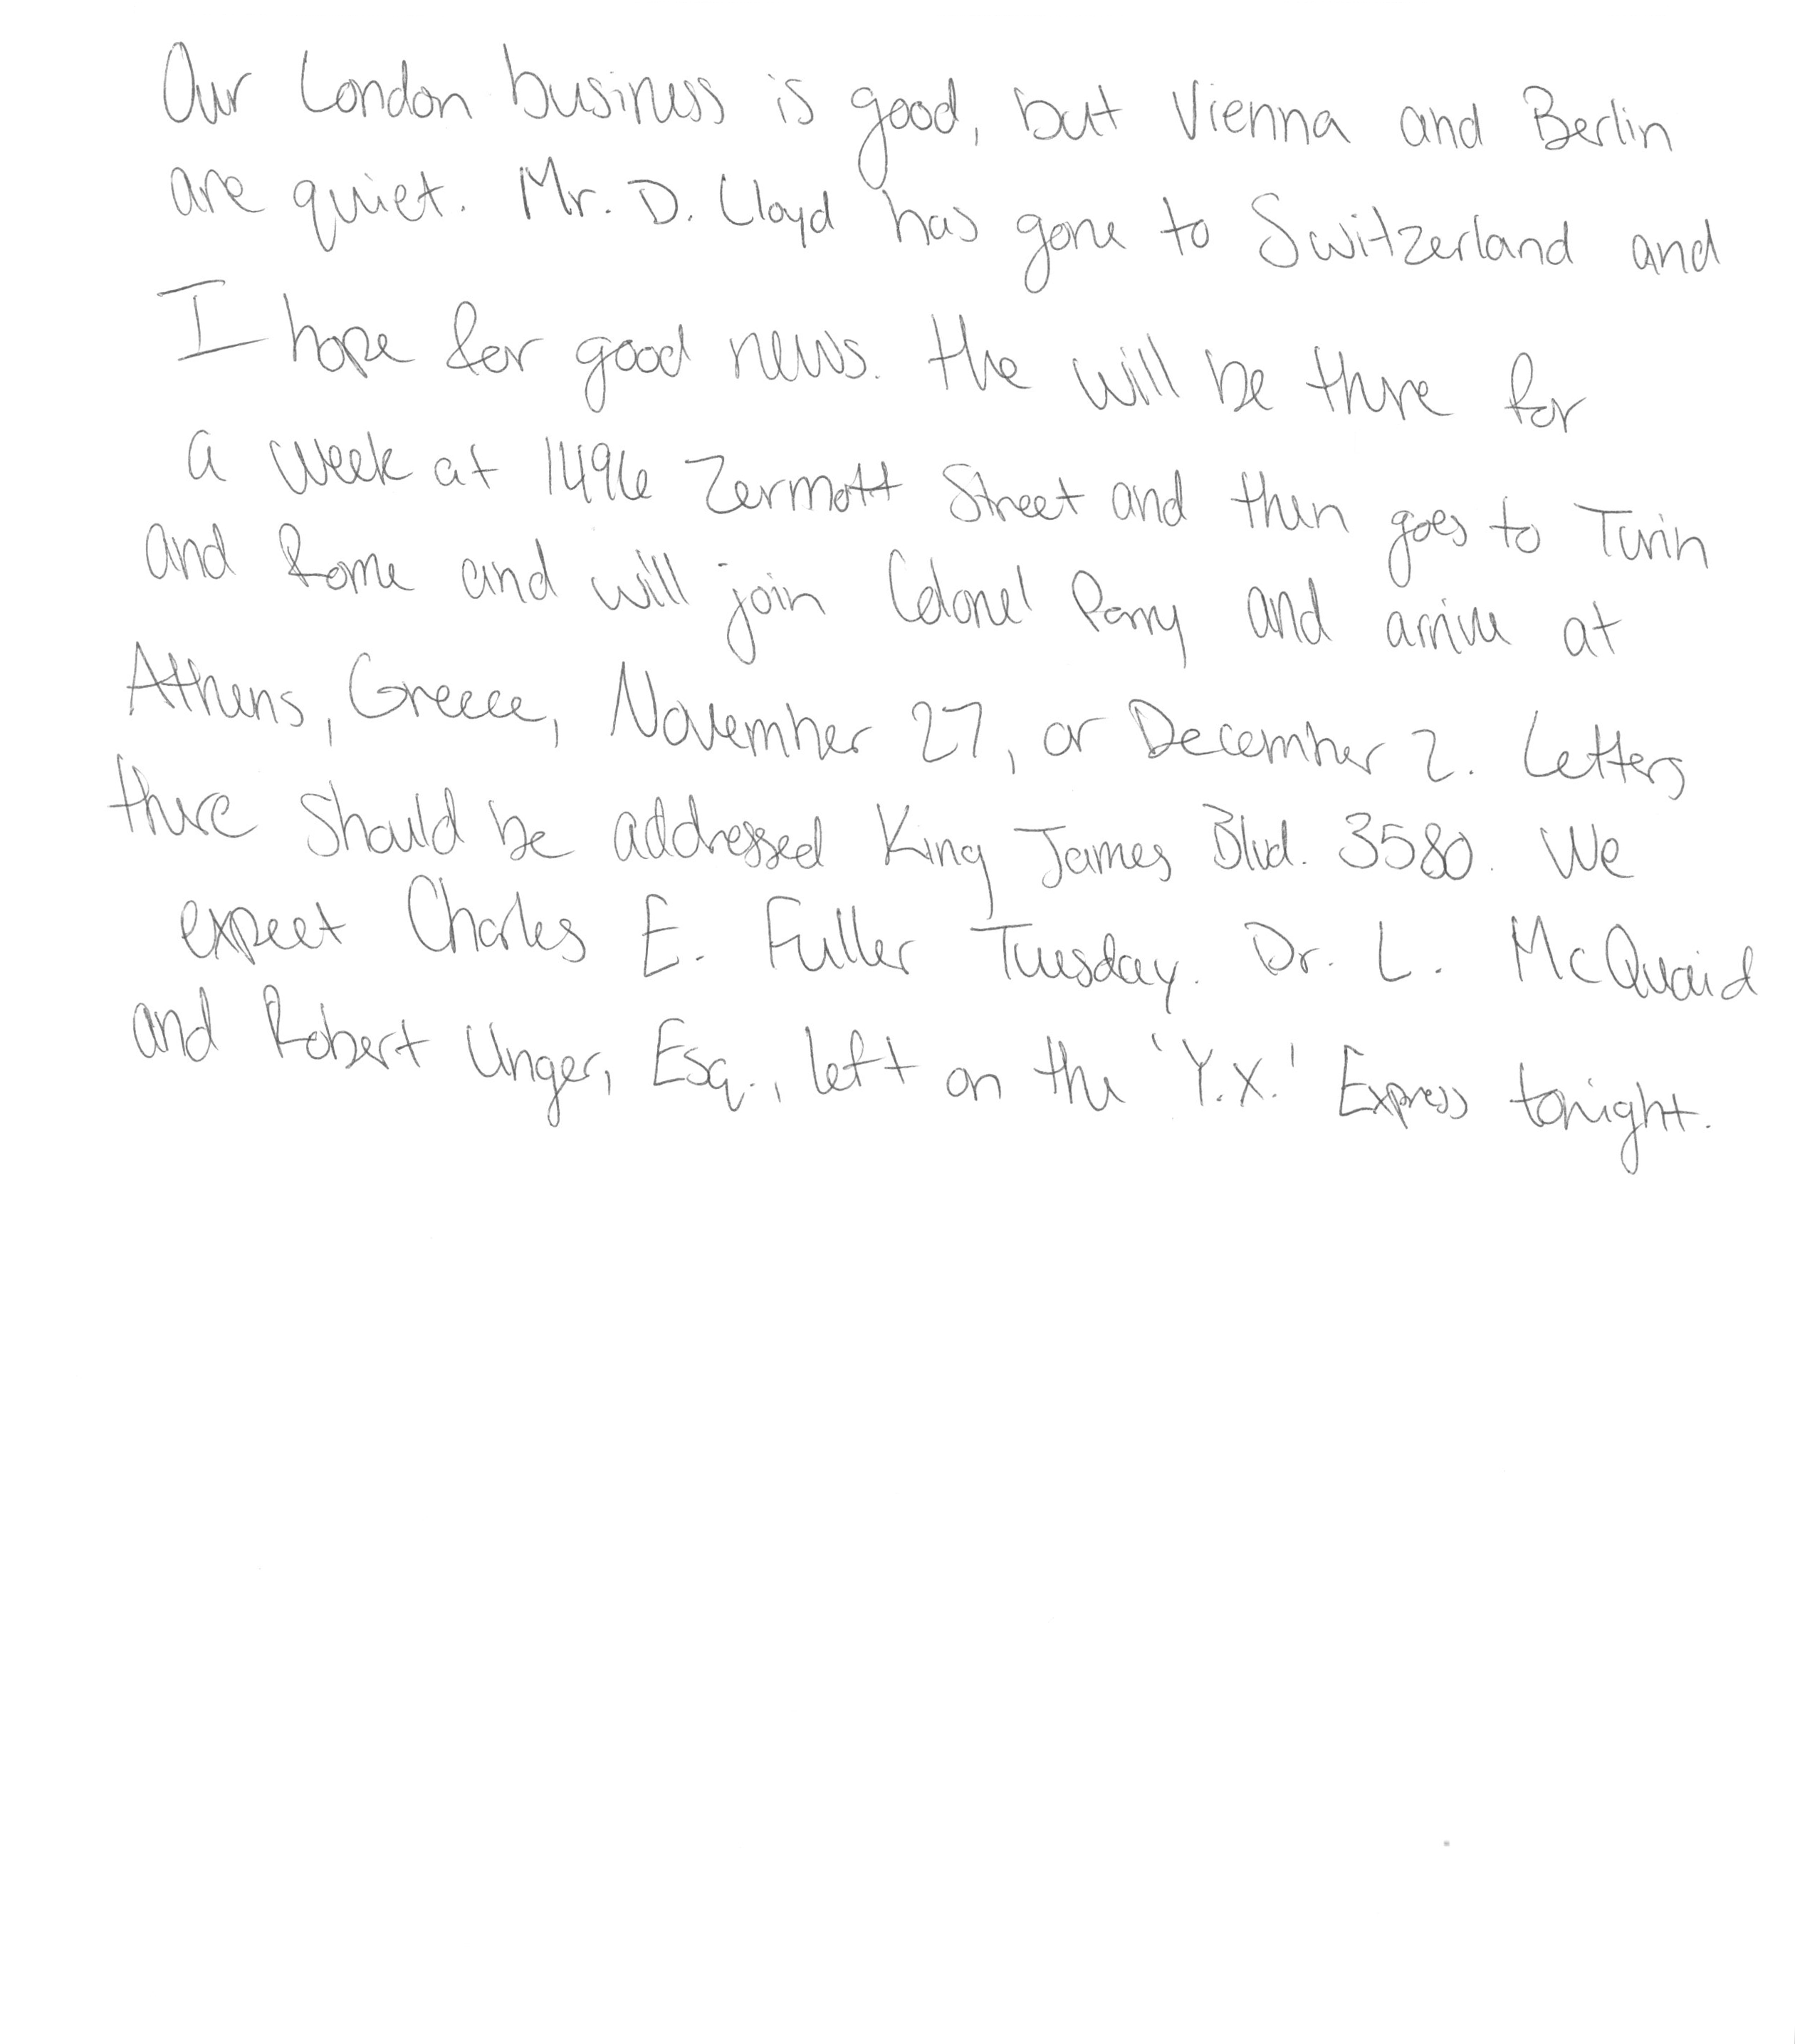 Our London business is good, but Vienna and Berlin
are quiet. Mr. D. Lloyd has gone to Switzerland and
I hope for good news. He will be there for
a week at 1496 Zermott Street and then goes to Turin
and Rome and will join Colonel Parry and arrive at
Athens, Greece, November 27, or December 2. Letters
there should be addressed King James Blvd. 3580. We
expect Charles E. Fuller Tuesday. Dr. L. McQuaid
and Robert Unger, Esq., left on the 'Y.X.' Express tonight.